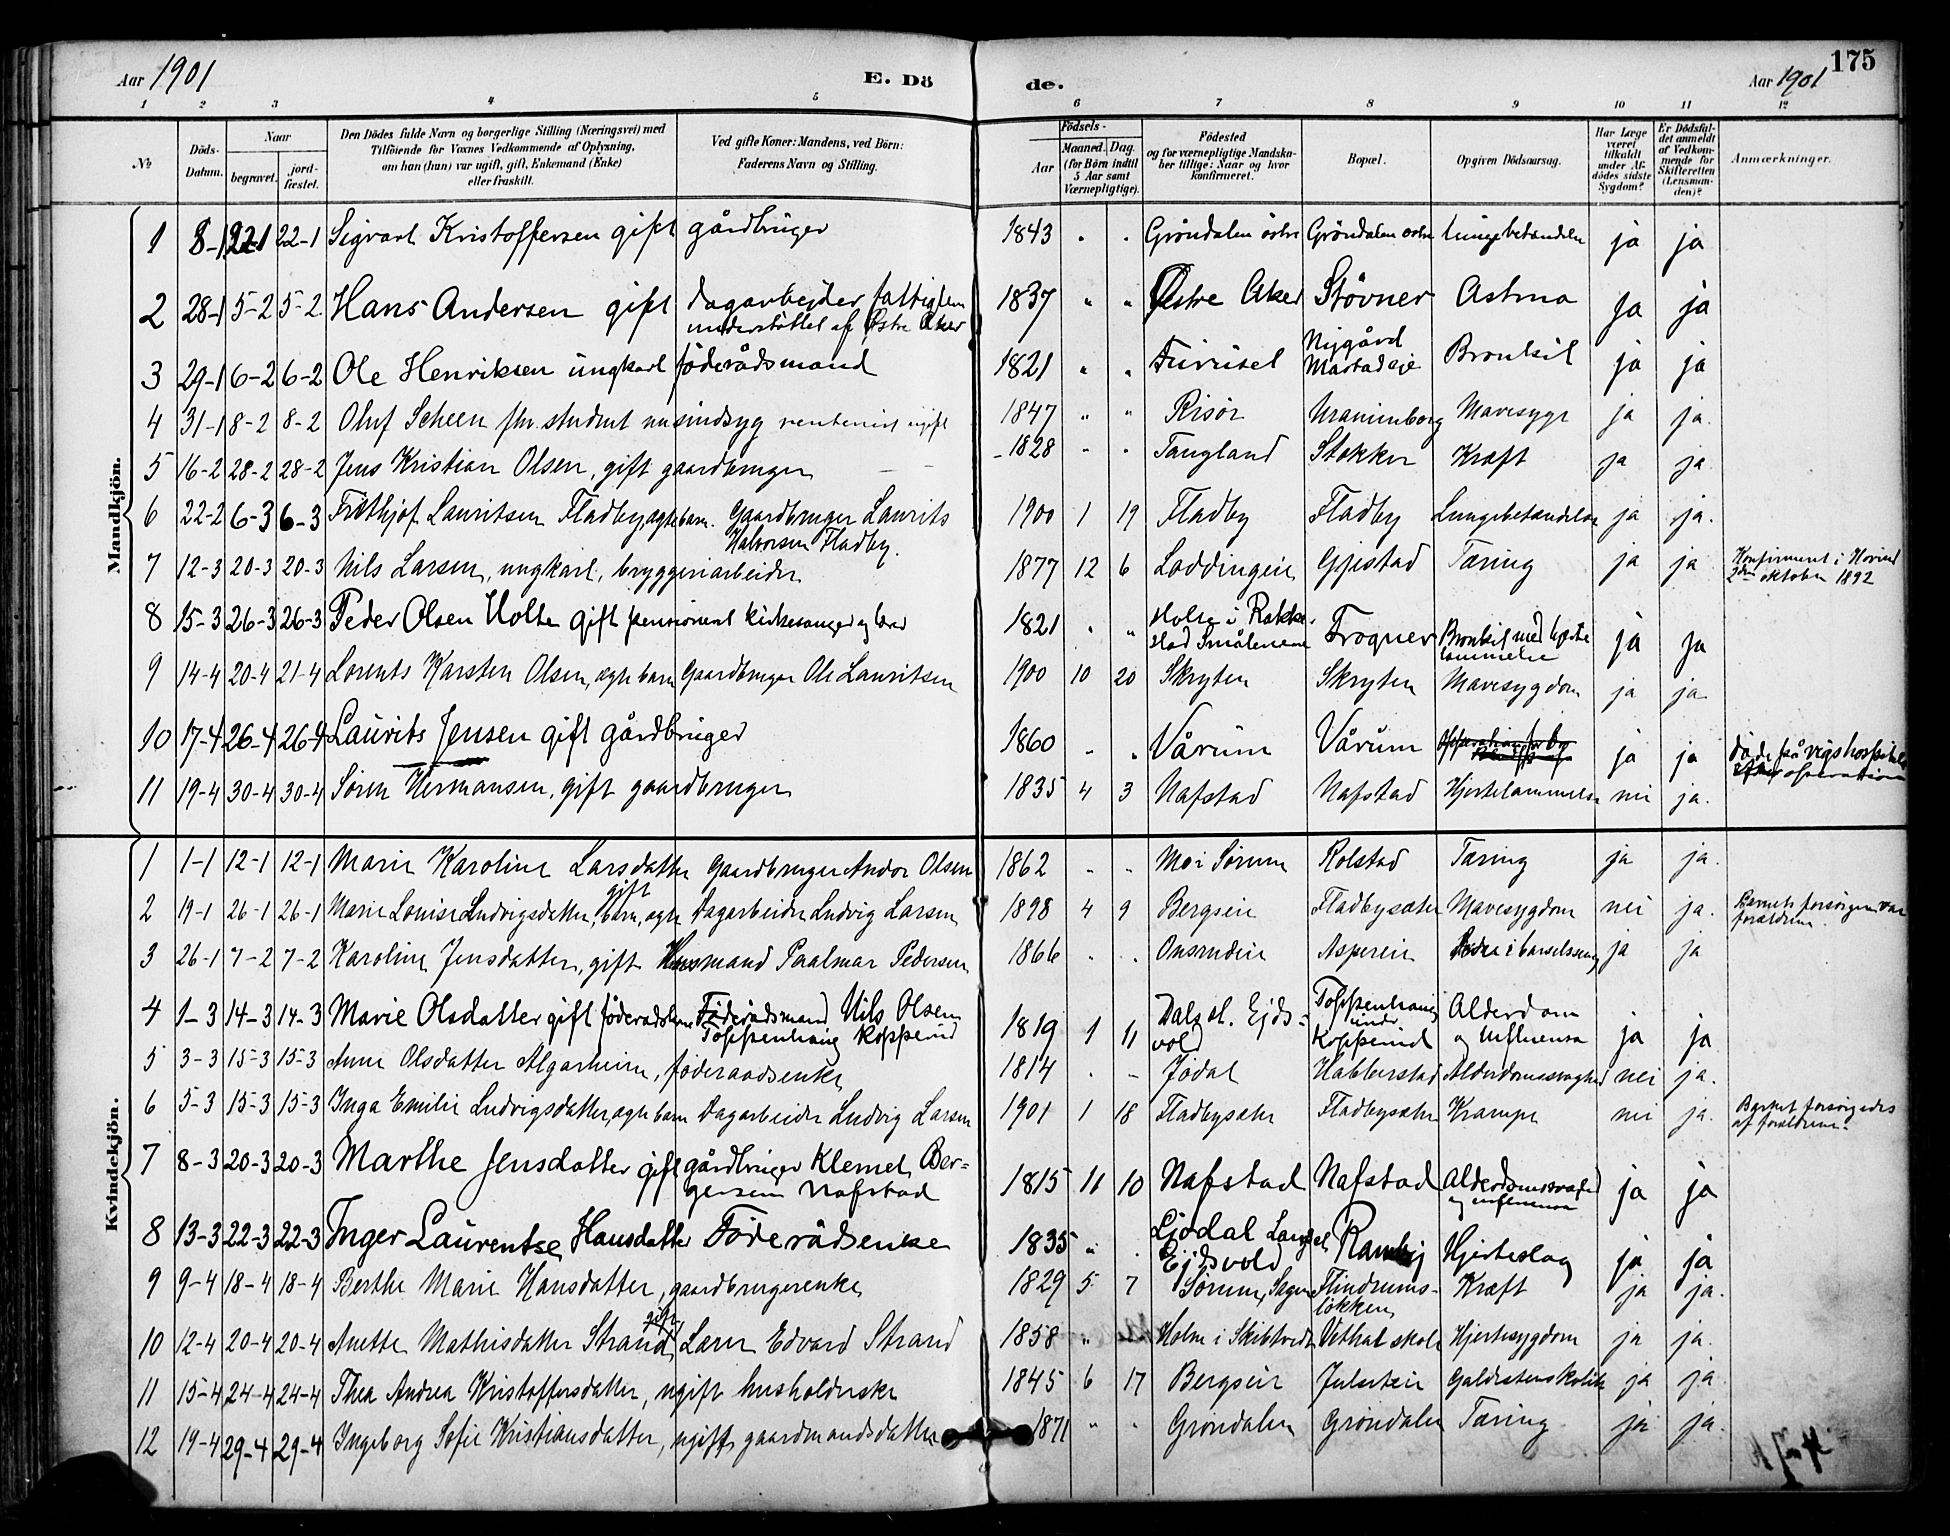 175
Aar 1901 E. Dö de. Aar 1901
1 2 3 4 5 6 7 8 9 10 11 12
№ Döds-Datum. Naar begravet. jord-fæstet. Den Dödes fulde Navn og borgerlige Stilling (Næringsvei) med Tilföiende for Voxnes Vedkommende af Oplysning, om han (hun) var ugift, gift, Enkemand (Enke) eller fraskilt. Ved gifte Koner: Mandens, ved Börn: Faderens Navn og Stilling. Födsels- Aar Maaned. Dag. (for Börn indtil 5 Aar samt Værnepligtige). Födested og for værnepligtige Mandskaber tillige: Naar og hvor konfirmeret. Bopæl. Opgiven Dödsaarsag. Har Læge været tilkaldt under Afdödes sidste Sygdom? Er Dödsfaldet anmeldt af Vedkommende for Skifteretten (Lensmanden)? Anmærkninger.
Mandkjön.
1 8-1 22-1 22-1 Sigvart Kristoffersen gift gårdbruger 1843 " " Gröndalen östre Gröndalen östre Lungebetændelse ja ja
2 28-1 5-2 5-2 Hans Andersen gift dagarbejder fattiglem 1837 " " Østre Aker Stövner Astma ja ja
understöttet af Østre Aker
3 29-1 6-2 6-2 Ole Henriksen ungkarl föderådsmand 1821 " " Furuset Nygård Bronkit ja ja
4 31-1 8-2 8-2 Oluf Scheen student sindsyg rentenist ugift 1847 " " Risör Uranienborg Mavesyge ja ja.
5 16-2 28-2 28-2 Jens Kristian Olsen, gift gaardbruger 1828 " " Tangland Stokker Kræft ja ja
6 22-2 6-3 6-3 Frithjof Lauritsen Fladby ægte barn. Gaardbruger Laurits 1900 1 19 Fladby Fladby Lungebetændelse ja ja.
Halvorsen Fladby.
7 12-3 20-3 20-3 Nils Larsen, ungkarl, bryggeriarbeider 1877 12 6 Loddingeie Gjistad Tæring ja ja Konfirmeret i
2den oktober 1892
8 15-3 26-3 26-3 Peder Olsen Holte gift pensioneret kirkesanger og lærer 1821 " " Holte i Rakke- Frogner Bronkit med hjerte ja ja
stad Smålenene lammelse
9 14-4 20-4 21-4 Lorents Karsten Olsen, ægte barn Gaardbruger Ole Lauritsen 1900 10 20 Skryten Skryten Mavesygdom ja ja
10 17-4 26-4 26-4 Laurits Jensen gift gårdbruger 1860 " " Vårum Vårum ja ja döde på rigshospitalet
efter operation
11 19-4 30-4 30-4 Sören Hermansen, gift gaardbruger 1835 4 3 Nafstad Nafstad Hjertelammelse nei ja.
Kvindekjön.
1 1-1 12-1 12-1 Marie Karoline Larsdatter Gaardbruger Andor Olsen 1862 " " Mo i Sörum Rolstad Tæring ja ja.
gift
2 19-1 26-1 26-1 Marie Louise Ludvigsdatter, barn, ægte Dagarbeider Ludvig Larsen 1898 4 9 Bergseie Fladbysæter Mavesygdom nei ja. Barnets forsörgere var
forældrene.
3 26-1 7-2 7-2 Karoline Jensdatter, gift Husmand Paalmar Pedersen 1866 " " Onsrudeie Aspereie i barselsseng ja ja
4 1-3 14-3 14-3 Marie Olsdatter gift Föderådsmand Nils Olsen 1819 1 11 Dals ol. Ejds- Toppenhaug Alderdom ja ja
Toppenhaug Koppeind vold under Koppeind og influensa
5 3-3 15-3 15-3 Anne Olsdatter Algarheim, föderaadsenke 1814 " " Jödal Habberstad Alderdomssvaghed nei ja.
6 5-3 15-3 15-3 Inga Emilie Ludvigsdatter, ægte barn Dagarbeider Ludvig Larsen 1901 1 18 Fladbysæter Fladbysæter Krampe nei ja. Barnet forsörgedes
af forældrene.
7 8-3 20-3 20-3 Marthe Jensdatter gift gårdbruger Klemet Ber- 1815 11 10 Nafstad Nafstad Alderdomssvaghed ja ja
gersen Nafstad og influensa
8 13-3 22-3 22-3 Inger Laurentse Hansdatter Föderådsenke 1835 " " Ljödal Langset Ramby Hjerteslag ja ja
Ejdsvold
9 9-4 18-4 18-4 Berthe Marie Hansdatter, gaardbrugerenke 1829 5 7 Sörum, Flindrums- Kræft ja ja.
lökken
gift
10 12-4 20-4 20-4 Anette Mathisdatter Strand Lærer Edvard Strand 1858 " Holm i Skibtvedt Vethal skole Hjertesygdom ja ja.
11 15-4 24-4 24-4 Thea Andrea Kristoffersdatter, ugift husholderske 1845 6 17 Bergseie Julseteie Galdestenskolik ja ja
12 19-4 29-4 29-4 Ingeborg Sofie Kristiansdatter, ugift gaardmandsdatter 1871 " " Gröndalen Gröndalen Tæring ja ja.